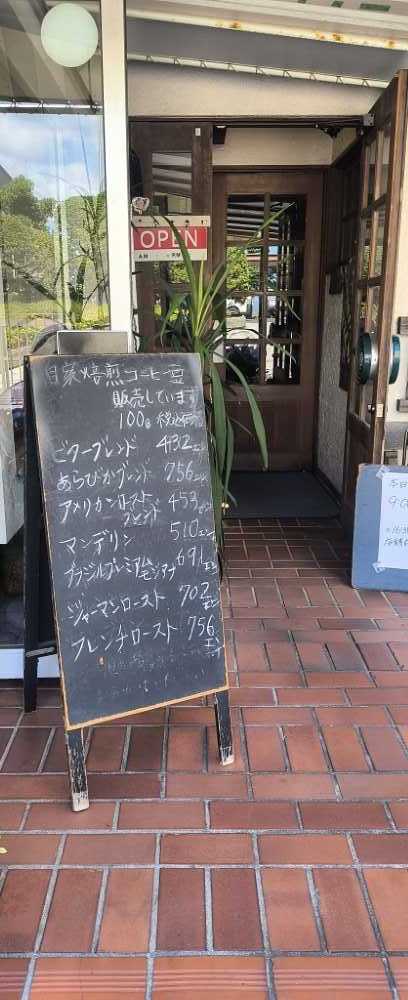 OPEN
AM PM
自家焙煎コーヒー豆
販売しています
100g 税込
ビターブレンド 432エン
あらびかブレンド 756エン
アメリカンロースト 453エン
ブレンド
マンデリン 510エン
ブラジルプレミアム 691エン
モジアナ
ジャーマンロースト 702エン
フレンチロースト 756エン
本日